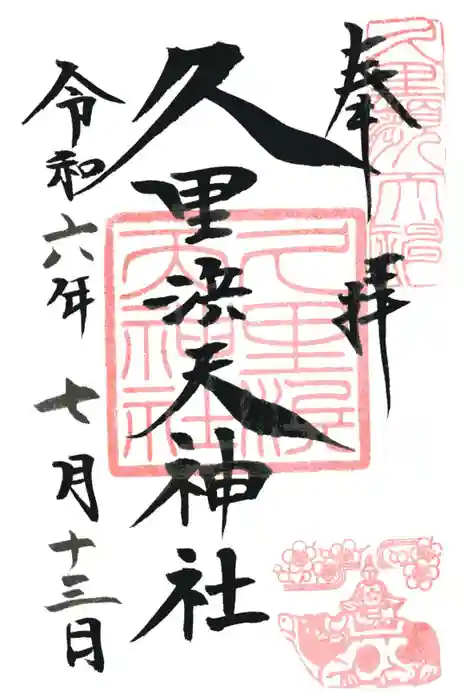 奉拝
久里浜天神社
令和六年七月十三日
久里浜天神社